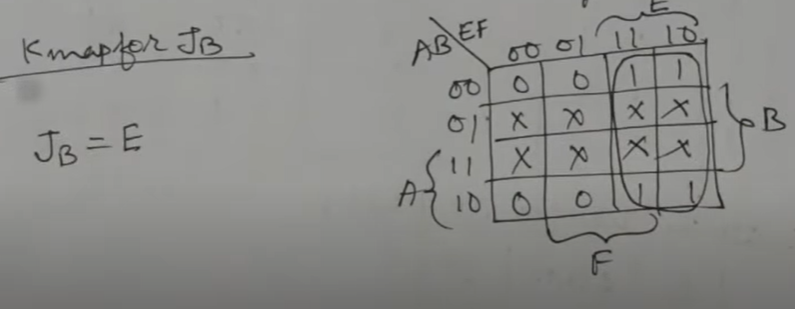 Kmap for J_B
J_B = E
E
AB EF
00 01 11 10
00 0 0 1 1
01 X X X X
B
11 X X X X
A
10 0 0 1 1
F